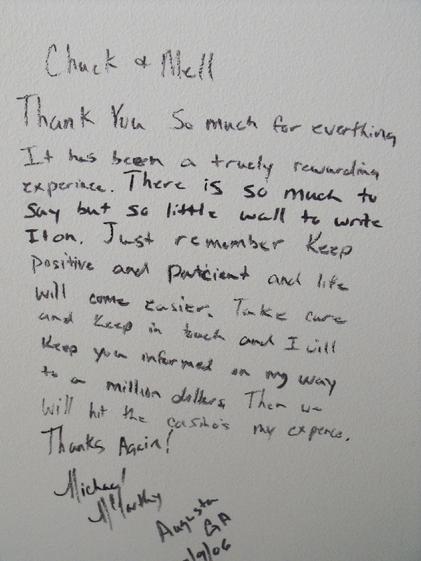 Chuck & Mell
Thank You So much for everthing
It has been a truely rewarding
experince. There is so much to
say but so little wall to write
It on. Just remember Keep
positive and patcient and life
will come easier. Take care
and Keep in touch and I will
Keep you informed on my way
to a million dollars. Then we
will hit the casino's my expence.
Thanks Again!
Michael
Augusta
GA
/9/06